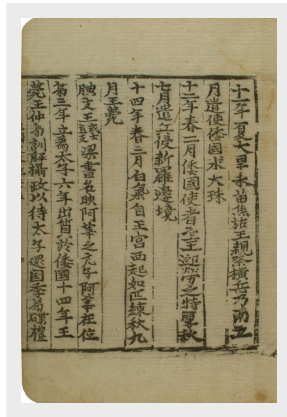 十一年夏大旱禾苗焦枯王親祭橫岳乃雨五
月遣使倭國求大珠
十二年春二月倭國使者至王迎勞之特厚秋
七月遣兵侵新羅邊境
十四年春三月白氣自王宮西起如匹練秋九
月王薨
腆支王或云直支梁書名映阿莘之元子阿莘在位
第三年立爲太子六年出質於倭國十四年王
薨王仲弟訓解攝政以待太子還國季弟碟禮